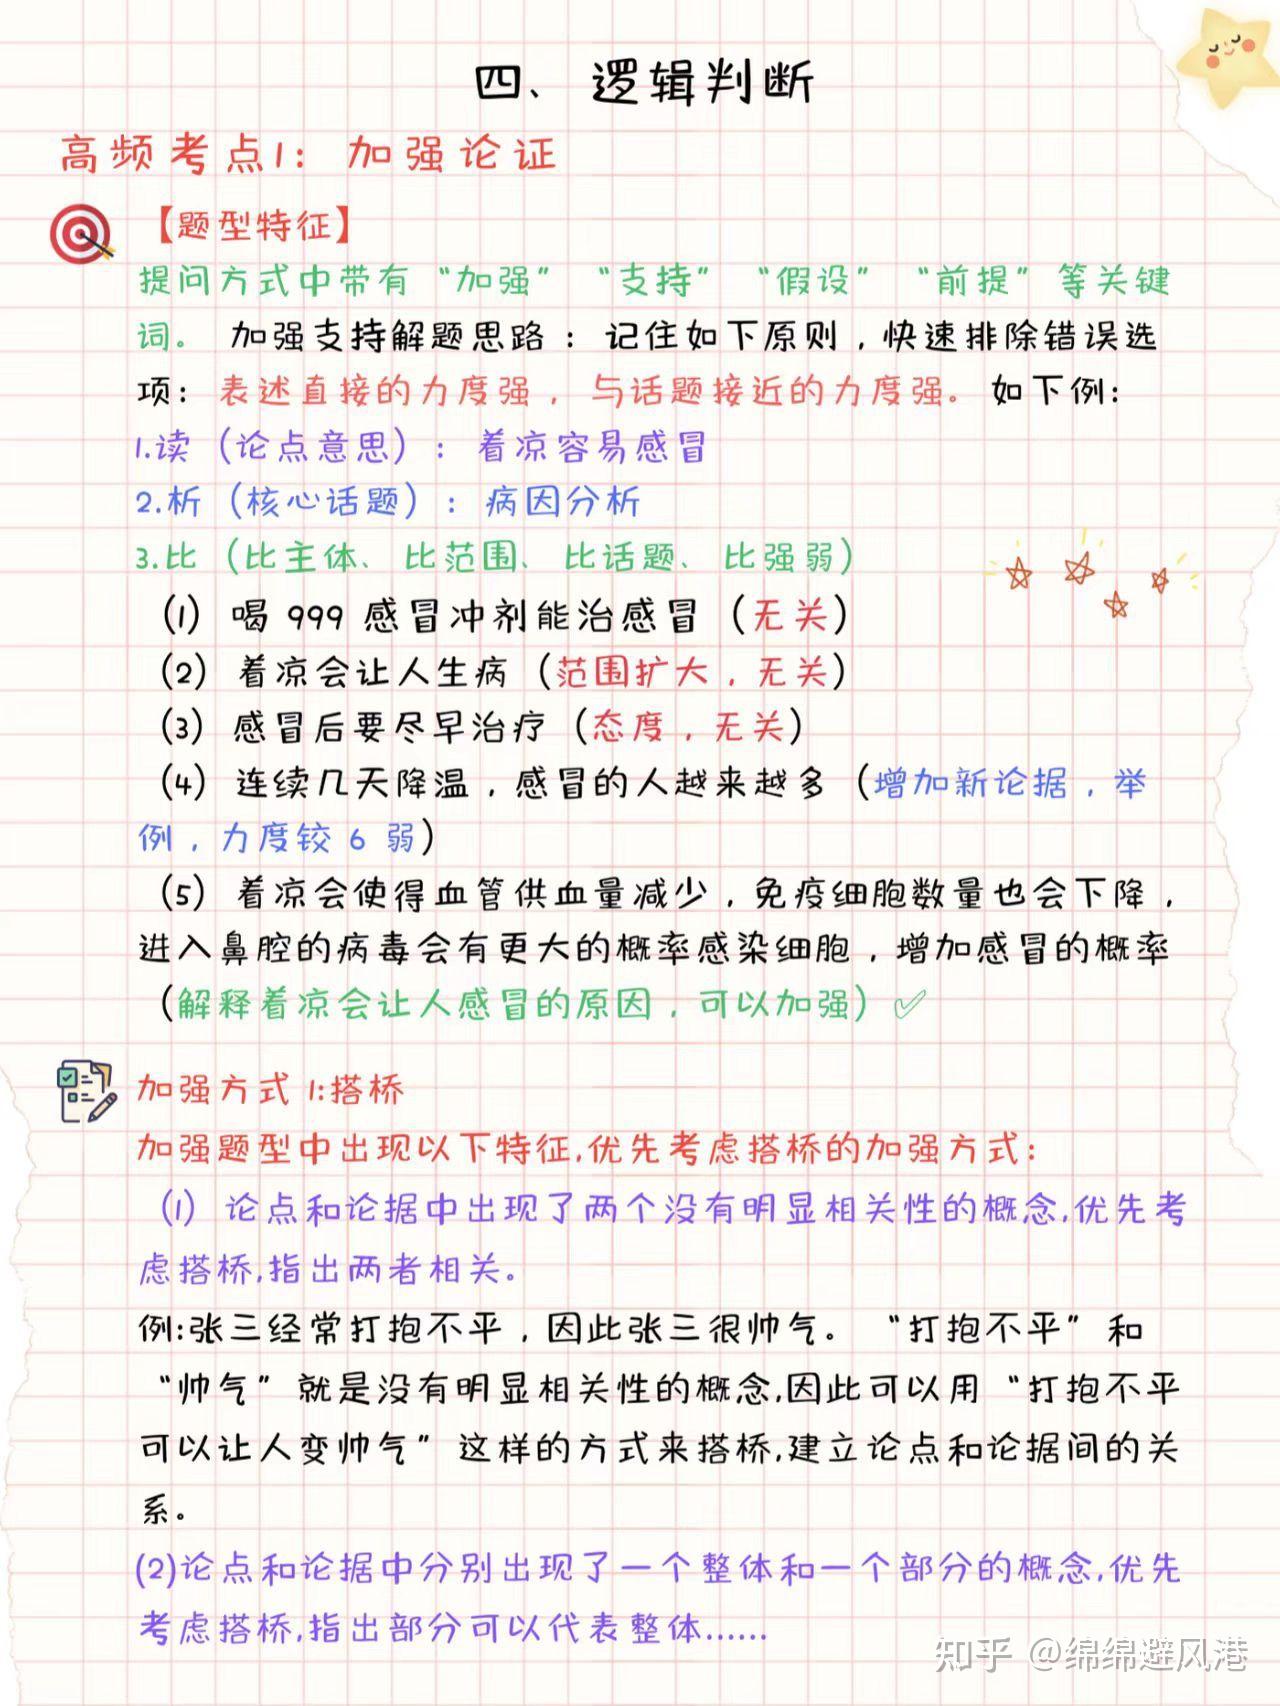 四、逻辑判断
高频考点1：加强论证
【题型特征】
提问方式中带有“加强”“支持”“假设”“前提”等关键
词。加强支持解题思路：记住如下原则，快速排除错误选
项：表述直接的力度强，与话题接近的力度强。如下例：
1.读（论点意思）：着凉容易感冒
2.析（核心话题）：病因分析
3.比（比主体、比范围、比话题、比强弱）
（1）喝 999 感冒冲剂能治感冒（无关）
（2）着凉会让人生病（范围扩大，无关）
（3）感冒后要尽早治疗（态度，无关）
（4）连续几天降温，感冒的人越来越多（增加新论据，举
例，力度较 6 弱）
（5）着凉会使得血管供血量减少，免疫细胞数量也会下降，
进入鼻腔的病毒会有更大的概率感染细胞，增加感冒的概率
（解释着凉会让人感冒的原因，可以加强）✅
加强方式 1:搭桥
加强题型中出现以下特征,优先考虑搭桥的加强方式:
（1）论点和论据中出现了两个没有明显相关性的概念,优先考
虑搭桥,指出两者相关。
例:张三经常打抱不平，因此张三很帅气。“打抱不平”和
“帅气”就是没有明显相关性的概念,因此可以用“打抱不平
可以让人变帅气”这样的方式来搭桥,建立论点和论据间的关
系。
(2)论点和论据中分别出现了一个整体和一个部分的概念,优先
考虑搭桥,指出部分可以代表整体......
知乎 @绵绵避风港